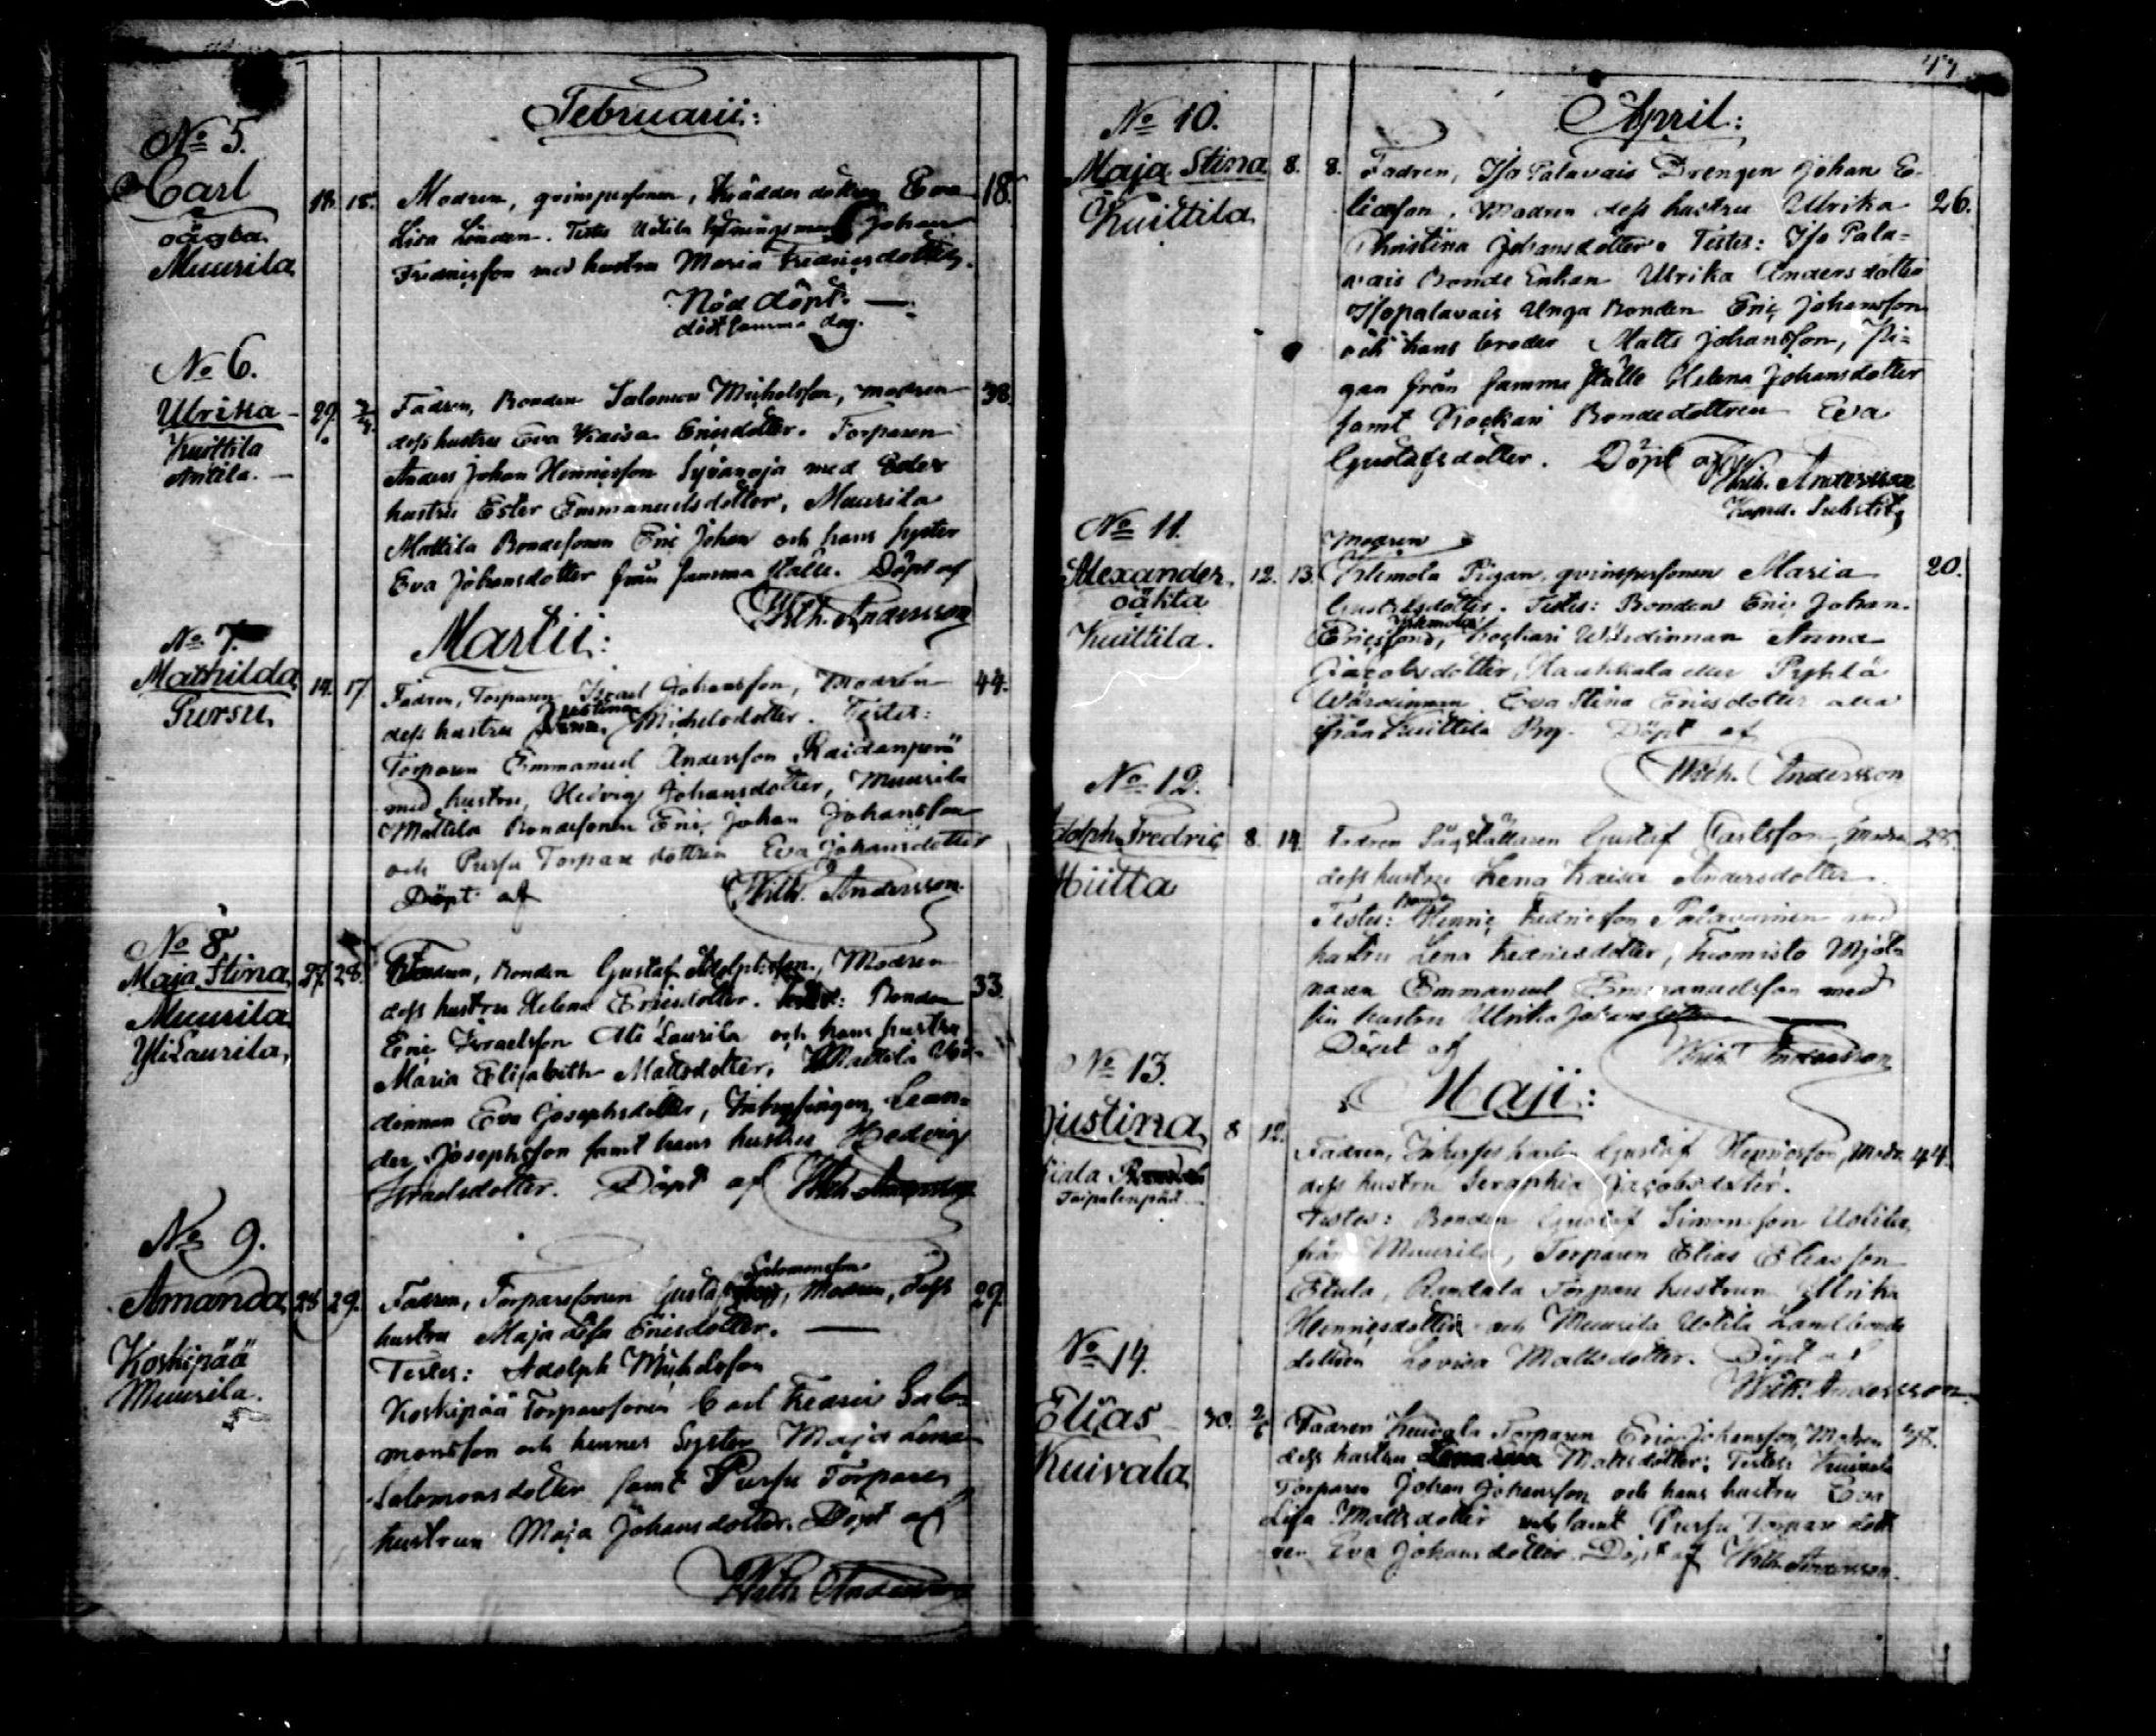 Februarii:
No 5.
Carl
oägta
Muurila
18. 18.
Modren, qvinspersonen, dottren Eva
18.
Lisa Lindén. Testes Johan
Fredricsson med hustru Maria Fredricsdotter.
Nöd döpt. —
död samma dag.
No 6.
Ulrika
Kuittila
Anttila. —
29. 2/3.
Fadren, Bonden Salomon Michelsson, modren
38.
dess hustru Eva Kaisa Ericsdotter. Torparen
Anders Johan Henricsson Syvänoja med
hustru Ester Emmanuelsdotter, Muurila
Mattila Bondesonen Eric Johan och hans syster
Eva Johansdotter från samma ställe. Döpt af
Wilh. Andersson
Martii:
No 7.
Mathilda
Pursu.
14. 17
Fadren, Torparen Israel Johansson, Modren
44.
dess hustru Justina Michelsdotter. Testes:
Torparen Emmanuel Andersson Raidanperä
med hustru, Hedvig Johansdotter, Muurila
Mattila Bondesonen Eric Johan Johansson
och Pursu Torpare dottren Eva Johansdotter
Döpt af
Wilh. Andersson.
No 8
Maja Stina
Muurila
YliLaurila,
27. 28.
Fadren, Bonden Gustaf Adolphsson, Modren
33.
dess hustru Helena Ericsdotter. Bonden
Eric Israelsson Ali Laurila och hans hustru
Maria Elisabeth Mattsdotter, Mattila Vär-
dinnan Eva Josephsdotter, Inhysingen Lean-
der Josephsson samt hans hustru Hedvig
Israelsdotter. Döpt af Wilh. Andersson
No 9.
Amanda
Koskipää
Muurila.
28 29.
Salomonsson
Fadren, Torparesonen Gustaf, Modren, dess
29.
hustru Maja Lisa Ericsdotter. —
Testes: Adolph Michelsson
Koskipää Torparesonen Carl Fredric Salo-
monsson och hennes Syster Maja Lena
Salomonsdotter samt Pursu Torpare
hustrun Maja Johansdotter. Döpt af
Wilh. Andersson
47
April:
No 10.
Maja Stina
Kuittila
8. 8.
Fadren, Iso Palavais Drengen Johan E-
liasson, Modren dess hustru Ulrika
26.
Christina Johansdotter. Testes: Iso Pala-
vais Bonde Enkan Ulrika Andersdotter
Isopalavais Unga Bonden Eric Johansson
och hans broder Matts Johansson, Pi-
gan från samma ställe Helena Johansdotter
samt Kockari Bondedottren Eva
Gustafsdotter. Döpt af
Wilh. Andersson
No 11.
Alexander.
oäkta
Kuittila.
12. 13.
Modren
Yrkemola Pigan, qvinspersonen Maria
20.
Gustafsdotter. Testes: Bonden Eric Johan
Ericsson, Kockari Wärdinnan Anna
Jacobsdotter, Haukkala eller Pyhtä
Wärdinnan Eva Stina Ericsdotter alla
från Kuittila By. Döpt af
Wilh. Andersson
No 12.
Adolph Fredric
Hiitta
8. 14.
Fadren Gustaf Carlsson, Modren
28.
dess hustru Lena Kaisa Andersdotter
Testes: Henric Fredricsson Palavainen med
hustru Lena Fredricsdotter, Tuomisto Mjöl-
naren Emmanuel Emmanuelsson med
sin hustru Ulrika Johansdotter
Döpt af
Wilh. Andersson
Maji:
No 13.
Justina
Taipalenpää
8 12.
Fadren, Inhyses karlen Gustaf Henricsson, Modr.
44.
dess hustru Seraphia Jacobsdotter.
Testes: Bonden Gustaf Simonsson Uotila,
från Muurila, Torparen Elias Eliasson
Etula, Randala Torpare hustrun Ulrika
Henricsdotter och Muurila Uotila Landbonde
dottren Lovisa Mattsdotter. Döpt af
Wilh. Andersson.
No 14.
Elias
Kuivala
30. 2/6
Fadren Kuivala Torparen Eric Johansson, Modren
dess hustru Mattsdotter; Testes Kuivala
Torparen Johan Johansson och hans hustru Eva
Lisa Mattsdotter samt Pursu Torpare dott
ren Eva Johansdotter. Döpt af Wilh. Andersson.